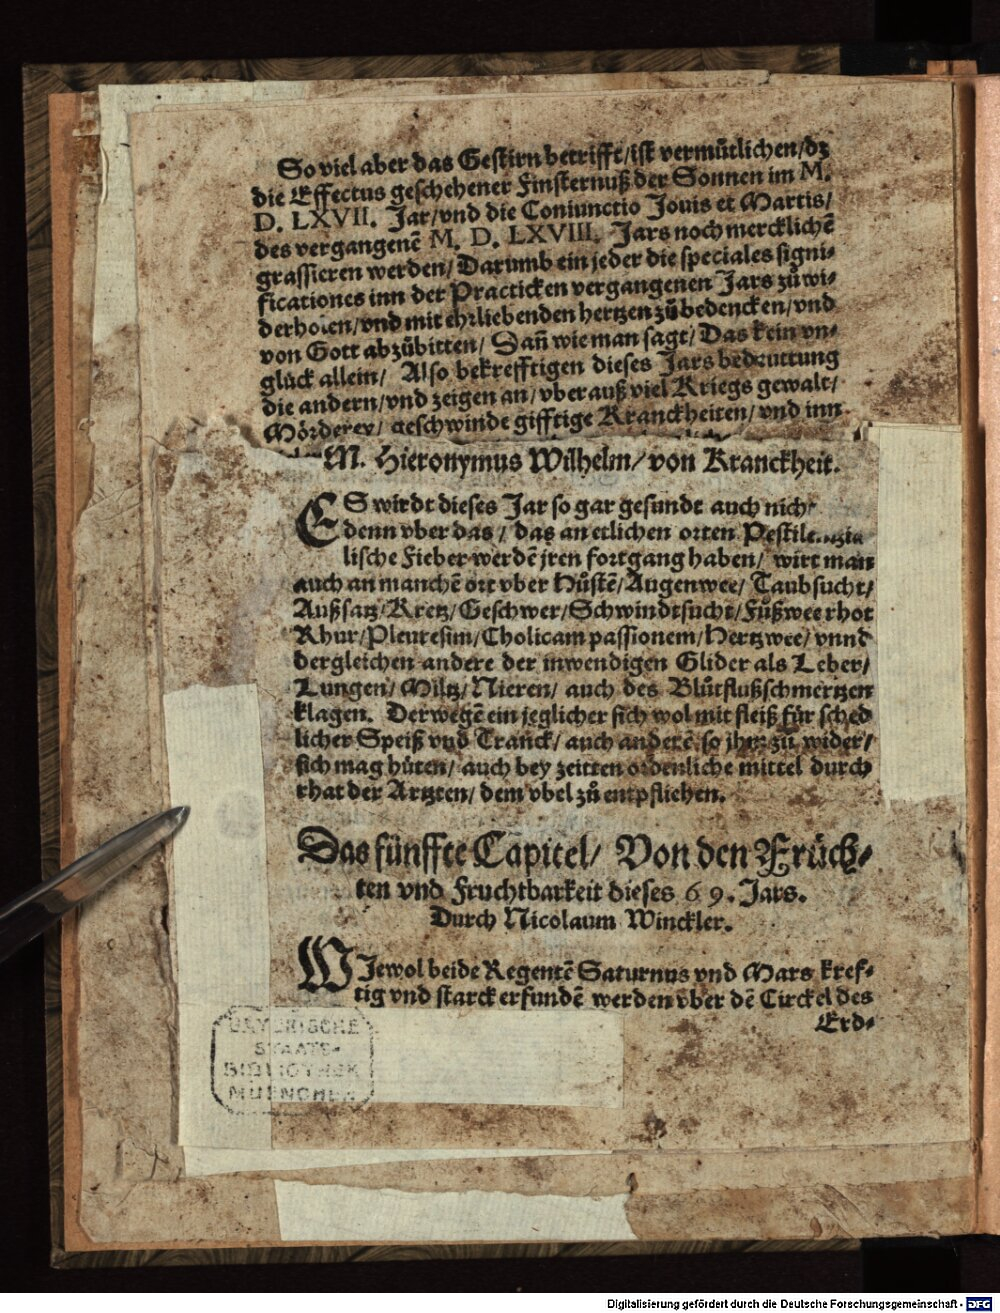 So viel aber das Gestirn betrifft/ist vermůtlichen/dz
die Effectus geschehener Finsternuß der Sonnen im M.
D. LXVII. Jar/vnd die Coniunctio Jouis et Martis/
des vergangenē M. D. LXVIII. Jars noch mercklichē
grassieren werden/ Darumb ein jeder die speciales signi-
ficationes inn der Practicken vergangenen Jars zů wi-
derholen/vnd mit ehrliebenden hertzen zů bedencken/vnd
von Gott abzůbitten/ Dañ wie man sagt/ Das kein vn-
glück allein/ Also bekrefftigen dieses Jars bedeuttung
die andern/vnd zeigen an/vberauß viel Kriegs gewalt/
Mörderey/ geschwinde gifftige Kranckheiten/vnd inn
M. Hieronymus Wilhelm/von Kranckheit.
ES wirdt dieses Jar so gar gesundt auch nich
denn vber das / das an etlichen orten
lische Fieber werdē jren fortgang haben/ wirt man
auch an manchē ort vber Hůstē/Augenwee/Taubsucht/
Außsatz/Kretz/Geschwer/Schwindtsucht/Fůßwee rhot
Rhur/Pleuresim/Cholicam passionem/Hertzwee/vnnd
dergleichen andere der inwendigen Glider als Leber/
Lungen/Miltz/Nieren/ auch des Blůtflußschmertzen
klagen. Derwegē ein jeglicher sich wol mit fleiß für sched
licher Speiß vnd Tranck/ auch anderē so jhm zů wider/
sich mag hůten/ auch bey zeitten ordenliche mittel durch
rhat der Artzten/ dem vbel zů entpfliehen.
Das fünffte Capitel/ Von den Früch-
ten vnd Fruchtbarkeit dieses 69. Jars.
Durch Nicolaum Winckler.
WJewol beide Regentē Saturnus vnd Mars kref-
tig vnd starck erfundē werden vber dē Circkel des
Erd-
BAYERISCHE
STAATS-
BIBLIOTHEK
MUENCHEN
Digitalisierung gefördert durch die Deutsche Forschungsgemeinschaft - DFG